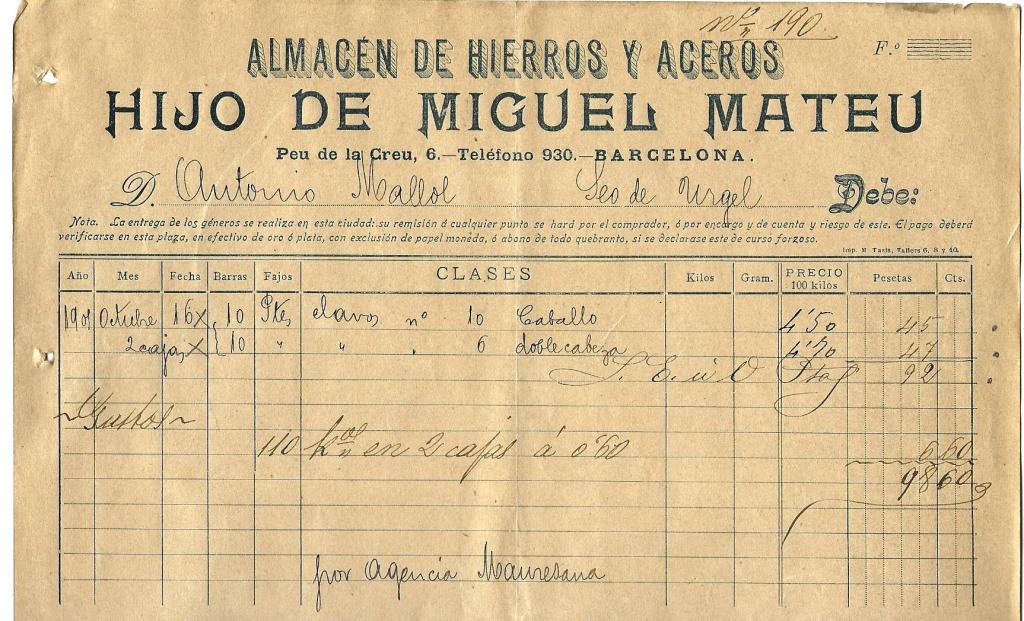 Nº 190.
ALMACÉN DE HIERROS Y ACEROS
F.º
HIJO DE MIGUEL MATEU
Peu de la Creu, 6.—Teléfono 930.—BARCELONA.
D. Antonio Mallol Seo de Urgel Debe:
Nota. La entrega de los géneros se realiza en esta ciudad: su remisión á cualquier punto se hará por el comprador, ó por encargo y de cuenta y riesgo de este. El pago deberá
verificarse en esta plaza, en efectivo de oro ó plata, con exclusión de papel moneda, ó abono de todo quebranto, si se declarase este de curso forzoso.
Imp. M Tasis, Tallers 6, 8 y 10.
Año Mes Fecha Barras Fajos CLASES Kilos Gram. PRECIO 100 kilos Pesetas Cts.
Octubre 16 X 10 Ptes clavos nº 10 Caballo 4'50 45
2 cajas X 10 " " . 6 doble cabeza 4'70 47
S. E. ú O Ptas 92
~Gastos~
110 kos en 2 cajas á 0'60 6 60
98 60
por Agencia Manresana